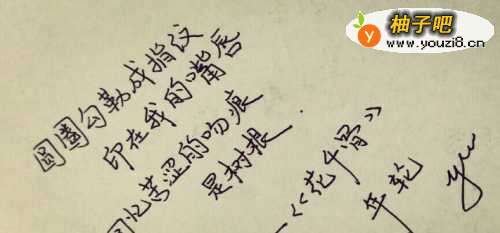 圆圈勾勒成指纹
印在我的嘴唇
回忆苦涩的吻痕
是树根.
—《花千骨》
年轮
yu
柚子吧
www.youzi8.cn